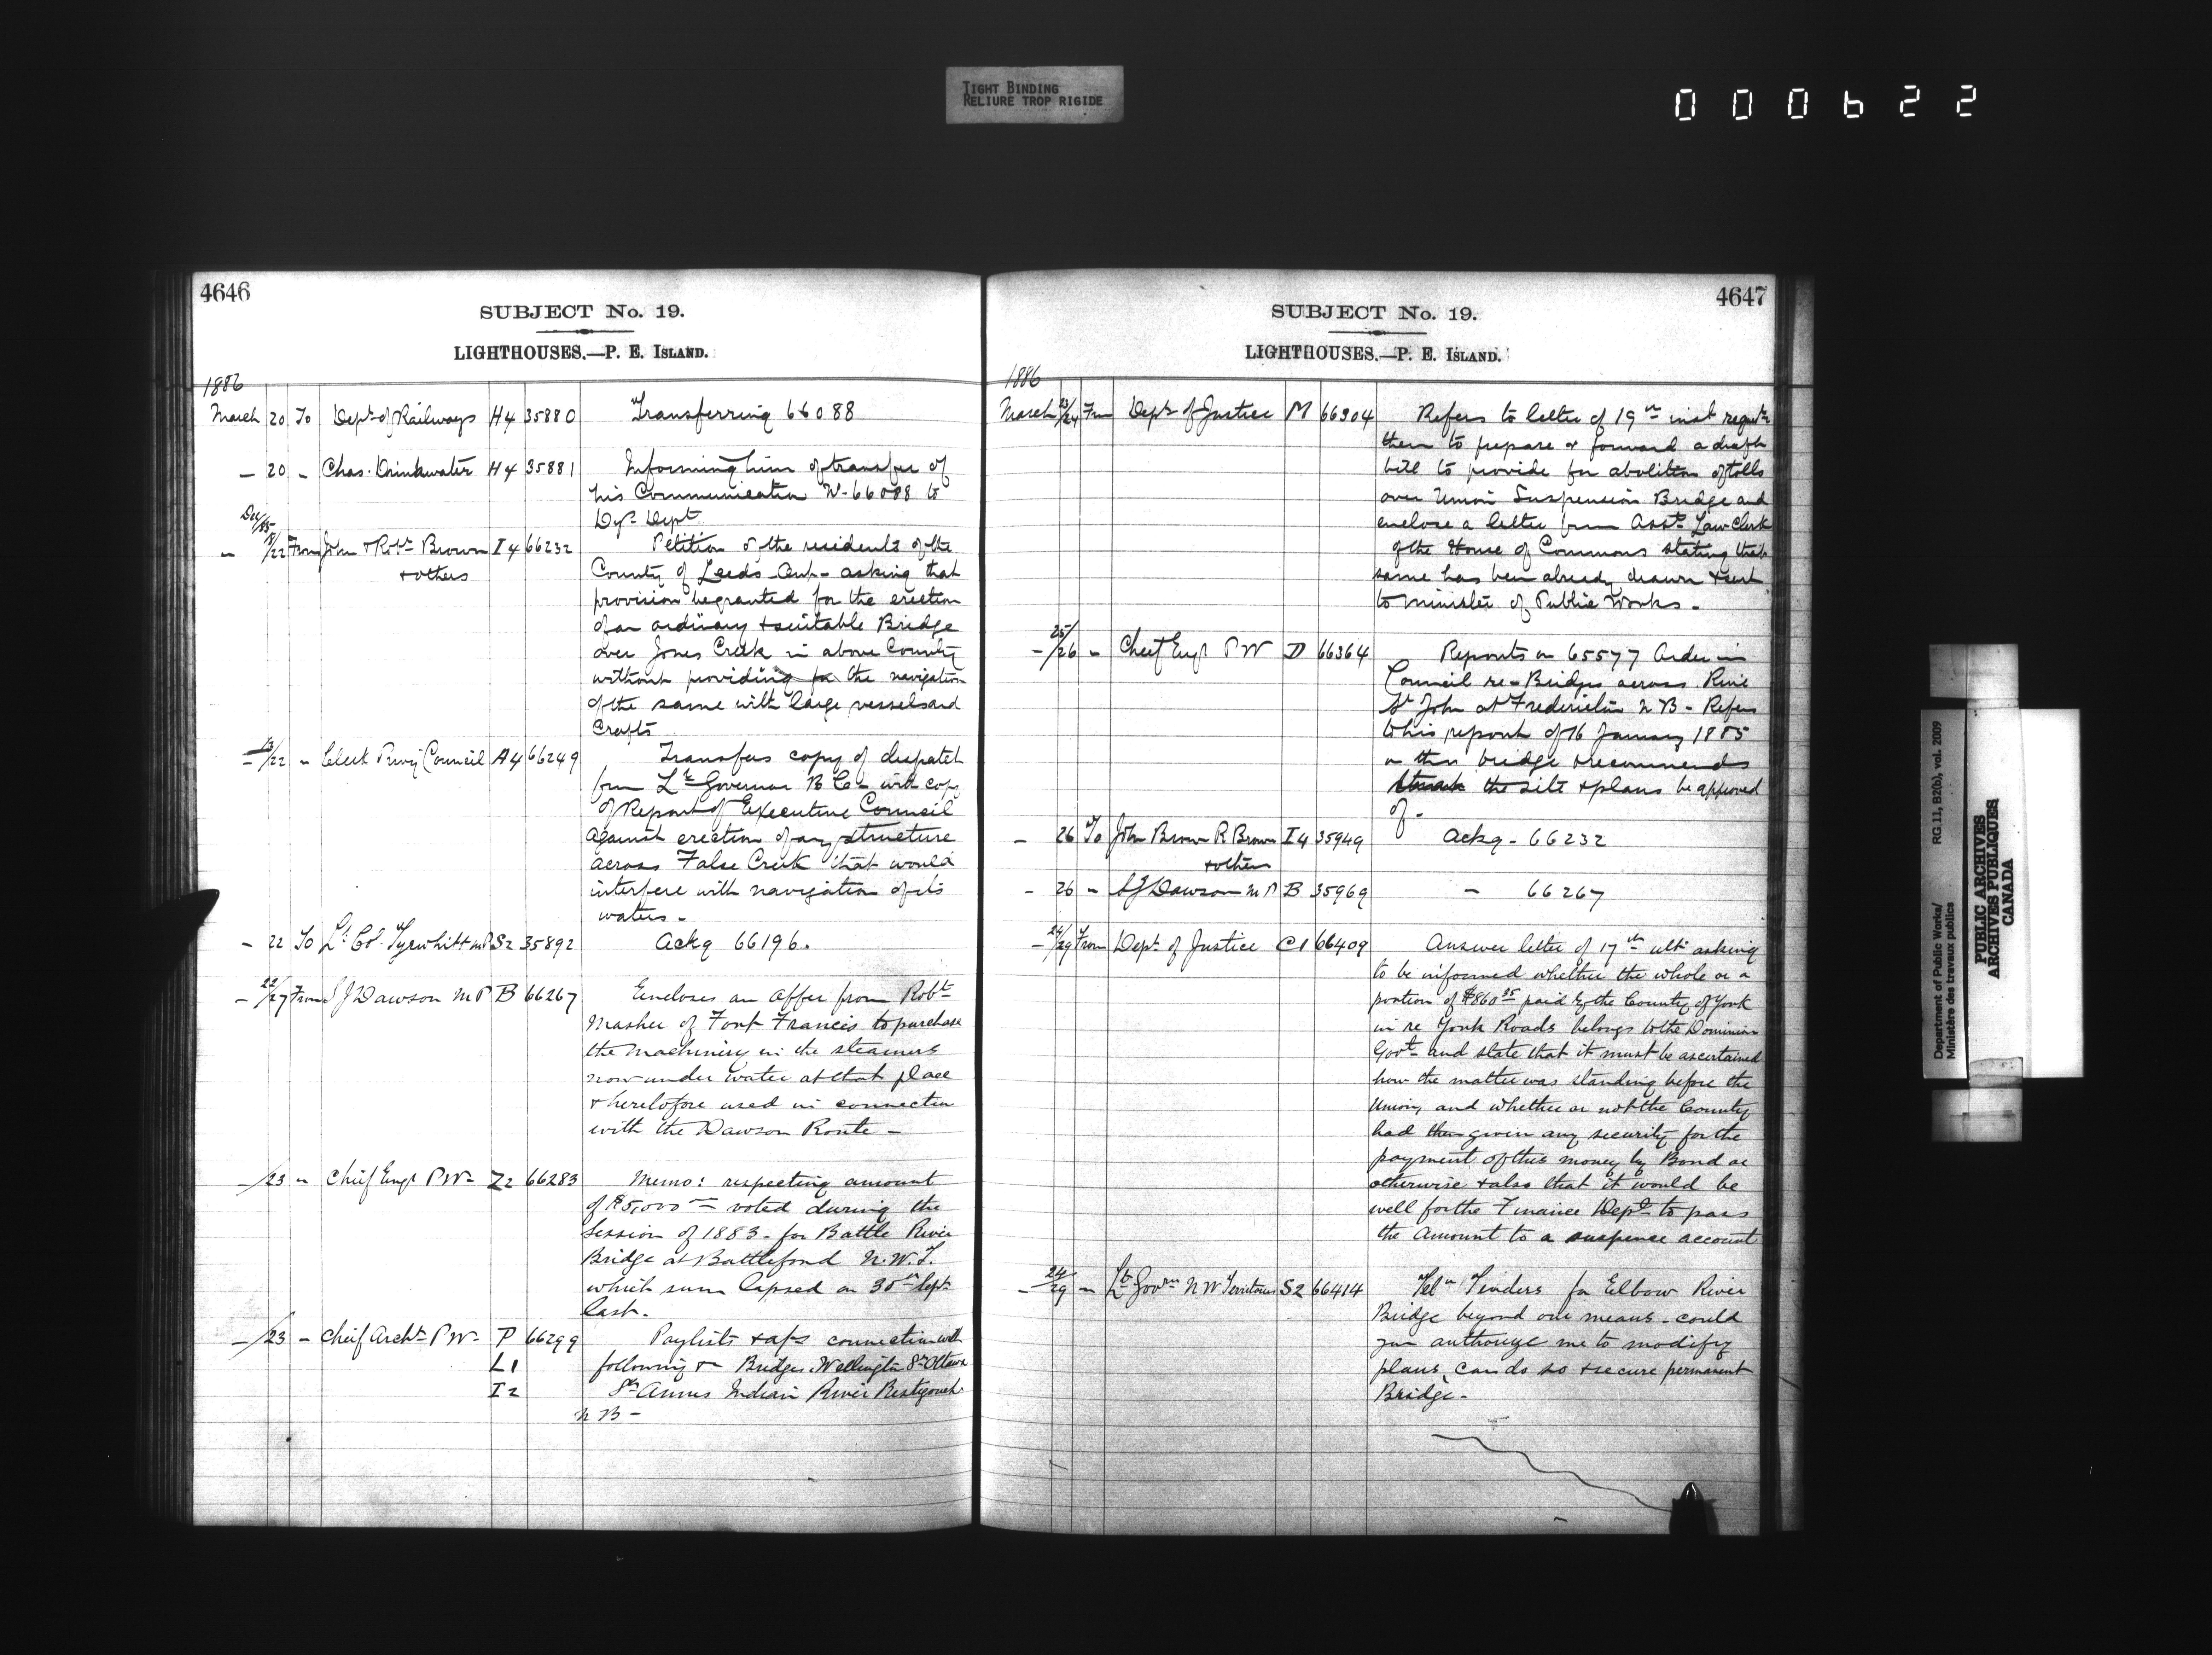 TIGHT BINDING
RELIURE TROP RIGIDE
000622
4646
SUBJECT No. 19.
LIGHTHOUSES.—P. E. ISLAND.
1886
March 20 To Dept of Railways H4 35880 Transferring 66088
– 20 – Chas. Drinkwater H4 35881 Informing him of transfer of
his Communication No 66088 to
Dept
Dec/85
– /22 From John & Robt Brown I4 66232 Petition of the residents of the
& others County of Leeds Ont – asking that
provision be granted for the erection
of an ordinary & suitable Bridge
over Jones Creek in above County
without providing for the navigation
of the same with large vessels and
Crafts
– 13/22 – Clerk Privy Council A4 66249 Transfers copy of despatch
from Lt Governor B Ca with copy
of Report of Executive Council
against erection of any structure
across False Creek that would
interfere with navigation of its
waters –
– 22 To Lt Col. Tyrwhitt MP S2 35892 Ackg 66196.
– 22/27 From S J Dawson MP B 66267 Encloses an offer from Robt
Masher of Fort Francis to purchase
the machinery in the steamers
now under water at that place
& heretofore used in connection
with the Dawson Route –
–/23 – Chief Engr PW– Z2 66283 Memo: respecting amount
of $5,000 – voted during the
Session of 1883 – for Battle River
Bridge at Battleford N.W.T.
which sum lapsed on 30th Sept
last.
–/23 – Chief Archt PW– P 66299 Paylists & a/cs connection with
L1 following Bridges Wellington St Ottawa
I2 St Annes Indian River Restigouche
N B –
4647
SUBJECT No. 19.
LIGHTHOUSES.—P. E. ISLAND.
1886
March 23/24 From Dept of Justice M 66304 Refers to letter of 19th inst requestg
them to prepare & forward a draft
bill to provide for abolition of tolls
over Union Suspension Bridge and
enclose a letter from Asst Law Clerk
of the House of Commons stating that
same has been already drawn & sent
to Minister of Public Works –
– 25/26 – Chief Engr PW D 66364 Reports on 65577 Order in
Council re – Bridges across River
St John at Fredericton N B – Refers
to his report of 16 January 1885
on this bridge & recommends
the site & plans be approved
of –
– 26 To John Brown R Brown I4 35949 Ackg – 66232
& others
– 26 – S J Dawson MP B 35969 – 66267
– 24/29 From Dept of Justice C1 66409 Answer letter of 17th ult asking
to be informed whether the whole or a
portion of $860 paid by the County of York
in re York Roads belongs to the Dominion
Govt – and state that it must be ascertained
how the matter was standing before the
Union, and whether or not the County
had then given any security for the
payment of this money by Bond or
otherwise & also that it would be
well for the Finance Dept to pass
the amount to a suspense account
– 24/29 – Lt Govrn N W Territories S2 66414 Telm Tenders for Elbow River
Bridge beyond our means – could
you authorize me to modify
plans, can do so & secure permanent
Bridge –
Department of Public Works/ RG 11, B2(b), vol. 2009
Ministère des travaux publics
PUBLIC ARCHIVES
ARCHIVES PUBLIQUES
CANADA